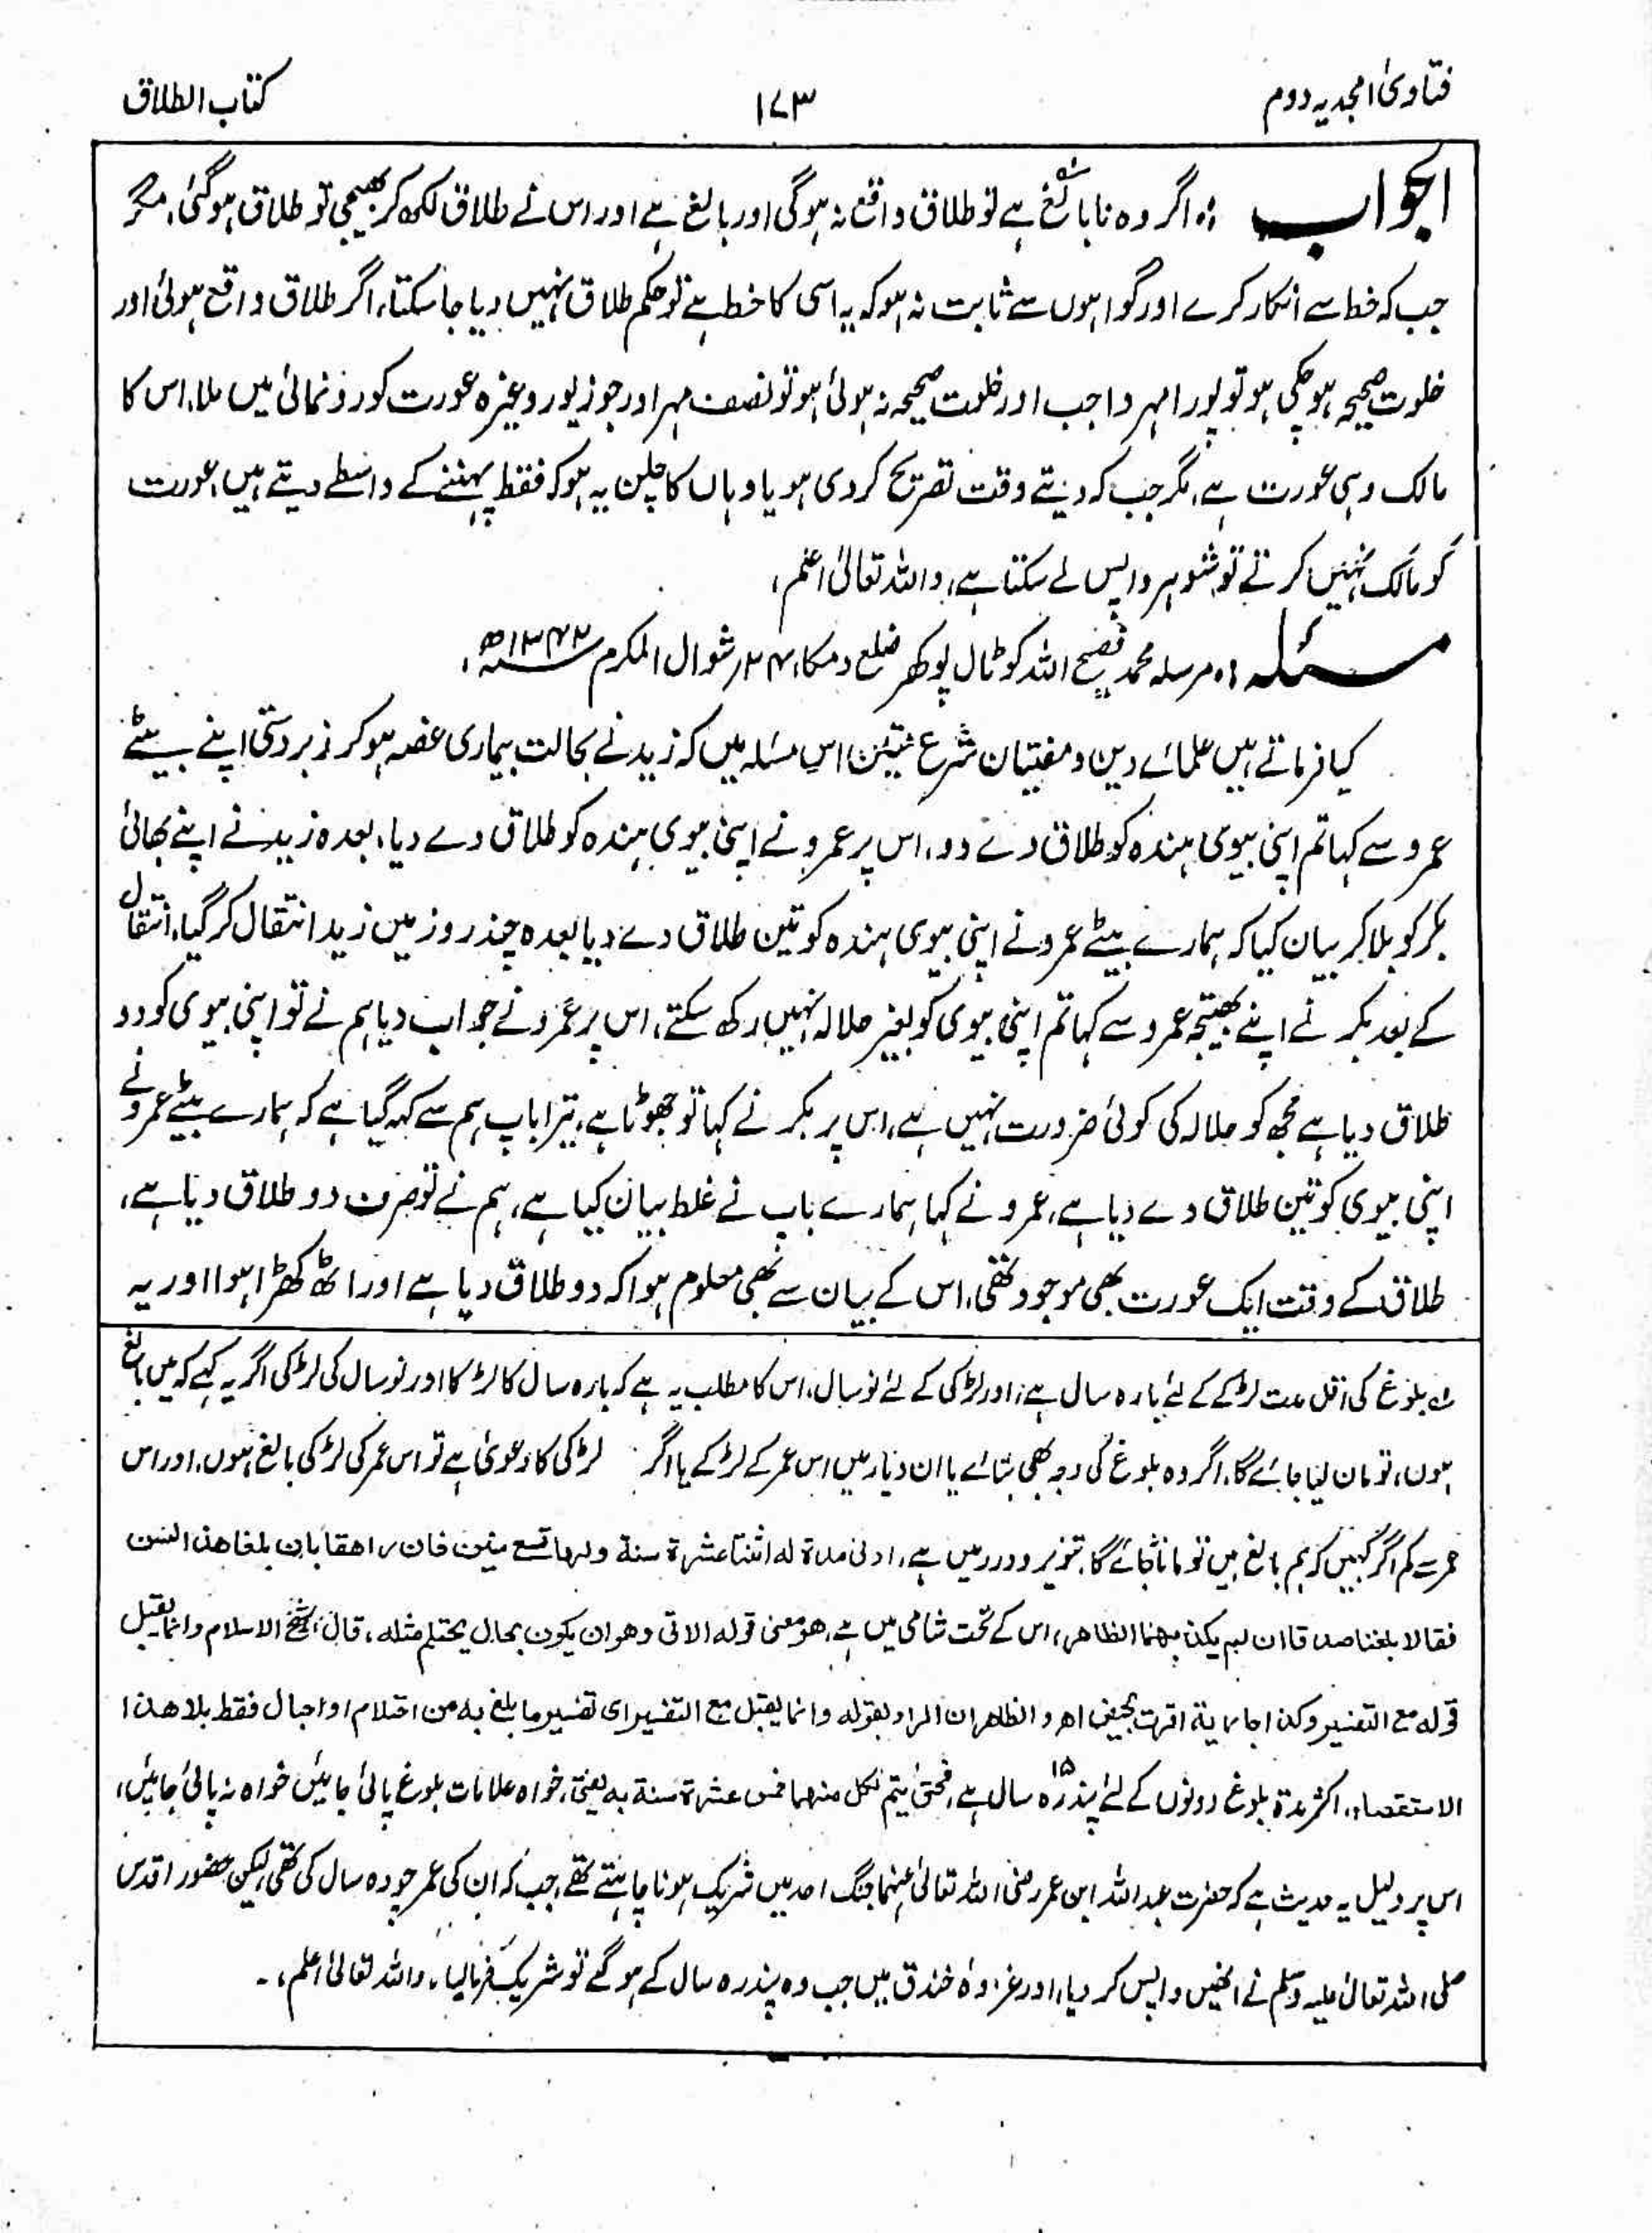 فتاویٰ امجدیہ دوم
۱۷۳
کتاب الطلاق
الجواب :۔ اگر وہ نابالغ ہے تو طلاق واقع نہ ہوگی اور بالغ ہے اور اس نے طلاق لکھ کر بھیجی تو طلاق ہوگئی، مگر
جب کہ خط سے انکار کرے اور گواہوں سے ثابت نہ ہو کہ یہ اسی کا خط ہے تو حکم طلاق نہیں دیا جاسکتا، اگر طلاق واقع ہوئی اور
خلوت صحیحہ ہوچکی ہو تو پورا مہر واجب اور خلوت صحیحہ نہ ہوئی ہو تو نصف مہر اور جو زیور وغیرہ عورت کو رونمائی میں ملا، اس کا
مالک وہی عورت ہے، مگر جب کہ دیتے وقت تصریح کردی ہو یا وہاں کا چلن یہ ہو کہ فقط پہننے کے واسطے دیتے ہیں، عورت
کو مالک نہیں کرتے تو شوہر واپس لے سکتا ہے، واللہ تعالیٰ اعلم،
مسئلہ :۔ مرسلہ محمد فصیح اللہ کوٹال پوکھر ضلع دمکا، ۲۴؍ شوال المکرم ۱۳۴۲ھ،
کیا فرماتے ہیں علمائے دین و مفتیان شرع متین اس مسئلہ میں کہ زید نے بحالت بیماری غصہ ہوکر زبردستی اپنے بیٹے
عمرو سے کہا تم اپنی بیوی ہندہ کو طلاق دے دو، اس پر عمرو نے اپنی بیوی ہندہ کو طلاق دے دیا، بعدہ زید نے اپنے بھائی
بکر کو بلاکر بیان کیا کہ ہمارے بیٹے عمرو نے اپنی بیوی ہندہ کو تین طلاق دے دیا بعدہ چند روز میں زید انتقال کر گیا، انتقال
کے بعد بکر نے اپنے بھتیجہ عمرو سے کہا تم اپنی بیوی کو بغیر حلالہ نہیں رکھ سکتے، اس پر عمرو نے جواب دیا ہم نے تو اپنی بیوی کو دو
طلاق دیا ہے مجھ کو حلالہ کی کوئی ضرورت نہیں ہے، اس پر بکر نے کہا تو جھوٹا ہے، تیرا باپ ہم سے کہہ گیا ہے کہ ہمارے بیٹے عمرو نے
اپنی بیوی کو تین طلاق دے دیا ہے، عمرو نے کہا ہمارے باپ نے غلط بیان کیا ہے، ہم نے تو صرف دو طلاق دیا ہے،
طلاق کے وقت ایک عورت بھی موجود تھی، اس کے بیان سے بھی معلوم ہوا کہ دو طلاق دیا ہے اور اٹھ کھڑا ہوا اور یہ
بلوغ کی اقل مدت لڑکے کے لئے بارہ سال ہے، اور لڑکی کے لئے نو سال، اس کا مطلب یہ ہے کہ بارہ سال کا لڑکا اور نو سال کی لڑکی اگر یہ کہے کہ میں بالغ
ہوں، تو مان لیا جائے گا، اگر وہ بلوغ کی وجہ بھی بتائے یا ان دیار میں اس عمر کے لڑکے یا اگر لڑکی کا دعویٰ ہے تو اس عمر کی لڑکی بالغ ہوں، اور اس
عمر سے کم اگر کہیں کہ ہم بالغ ہیں تو مانا نہ جائے گا، تنویر و درر میں ہے، ادنیٰ مدة له اثنتا عشرة سنة ولها تسع سنين فان راهقا بان بلغا هذا السن
فقالا بلغنا صدقا ان لم يكذبهما الظاهر، اس کے تحت شامی میں ہے، هو معنى قوله الاتى وهو ان يكون بحال يحتلم مثله، قال شيخ الاسلام وانما يقبل
قوله مع التفسير وكذا جارية اقرت بحيض اھ والظاهر ان المراد بقوله وانما يقبل مع التفسير اى تفسير ما بلغ به من احتلام او احبال فقط بلا هذا
الاستقصاء، اکثر مدة بلوغ دونوں کے لئے پندرہ ۱۵ سال ہے، فحتى يتم لكل منهما خمس عشرة سنة به يفتى، خواہ علامات بلوغ پائی جائیں خواہ نہ پائی جائیں،
اس پر دلیل یہ حدیث ہے کہ حضرت عبد اللہ ابن عمر رضی اللہ تعالیٰ عنہما جنگ احد میں شریک ہونا چاہتے تھے، جب کہ ان کی عمر چودہ سال کی تھی، لیکن حضور اقدس
صلی اللہ تعالیٰ علیہ وسلم نے انھیں واپس کر دیا، اور غزوۂ خندق میں جب وہ پندرہ سال کے ہوگئے تو شریک فرمالیا، واللہ تعالیٰ اعلم، ۔